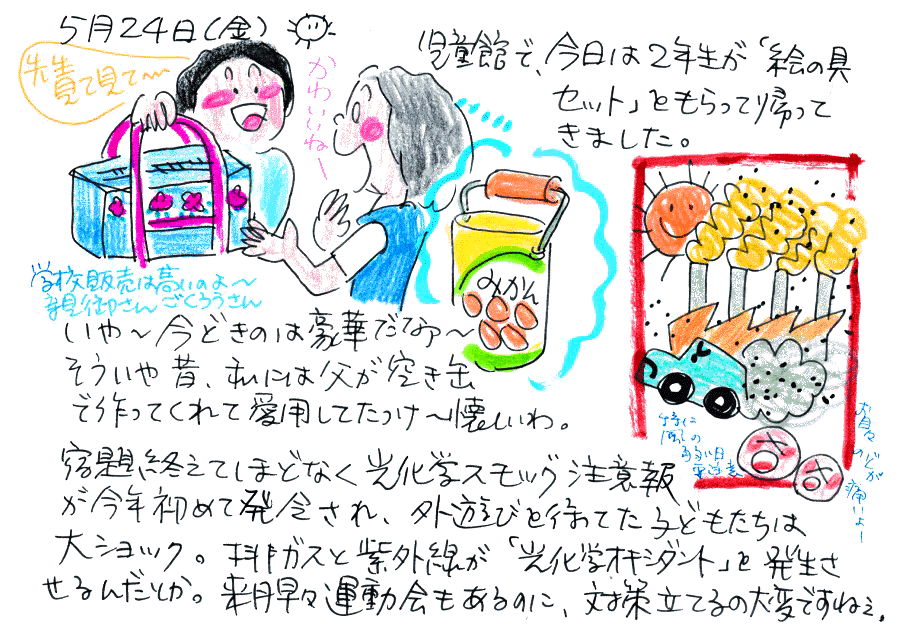 5月24日(金)
先生見て見て〜
かわいいねー
児童館で、今日は2年生が「絵の具
セット」をもらって帰って
きました。
学校販売は高いのよ〜
親御さんごくろうさん
みかん
いや〜今どきのは豪華だなァ〜
そういや昔、私には父が空き缶
で作ってくれて愛用してたっけ〜懐しいわ。
特に
風の
弱い日
要注意
目や
のどが
痛いよー
宿題終えてしほどなく光化学スモッグ注意報
が今年初めて発令され、外遊びを待ってた子どもたちは
大ショック。排ガスと紫外線が「光化学オキシダント」を発生さ
せるんだとか。来月早々運動会もあるのに、対策立てるの大変ですねぇ。